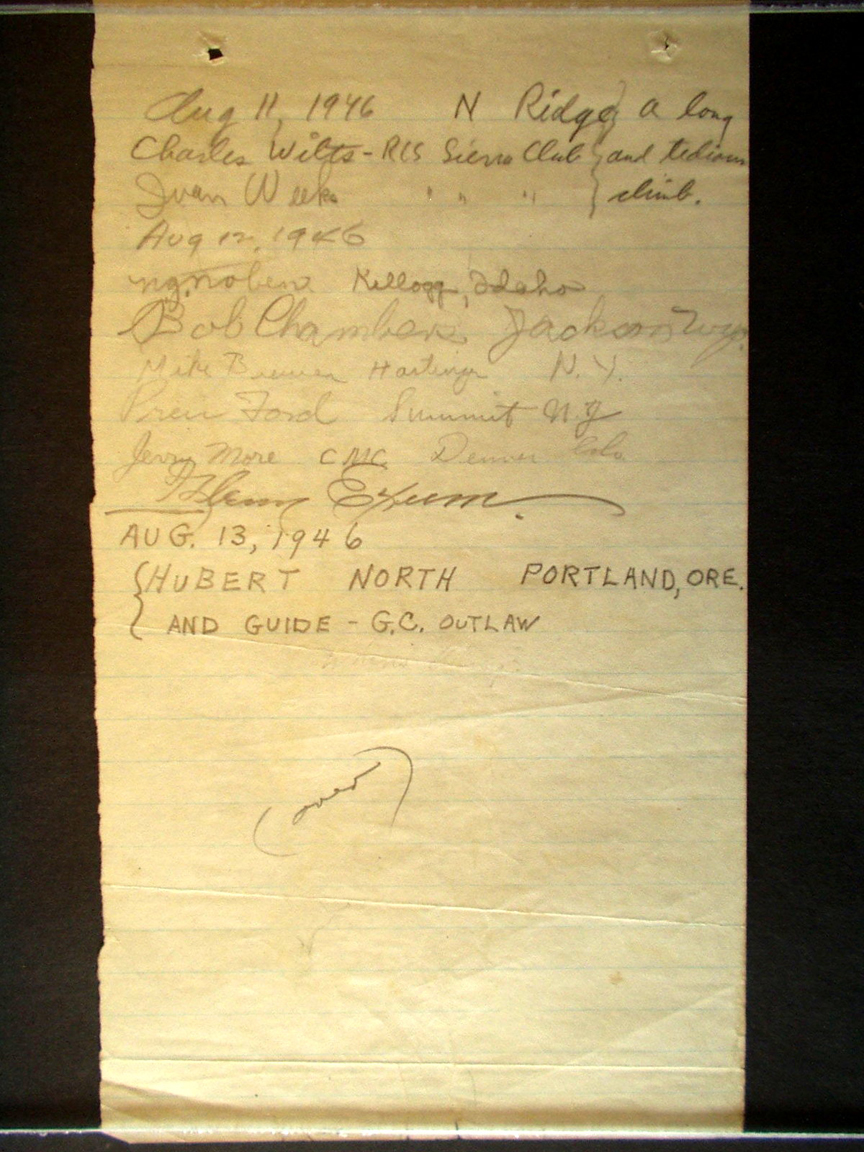 Aug 11, 1946 N Ridge } a long
Charles Wilts - RCS Sierra Club } and tedious
Ivan Weeks " " " } climb.
Aug 12, 1946
Kellogg, Idaho
Bob Chambers Jackson Wyo.
Mike Brewer Hastings N.Y.
Ford Summit N.J.
Jerry More CMC Denver Colo
Glenn Exum.
AUG. 13, 1946
{ HUBERT NORTH PORTLAND, ORE.
AND GUIDE - G.C. OUTLAW
(over)